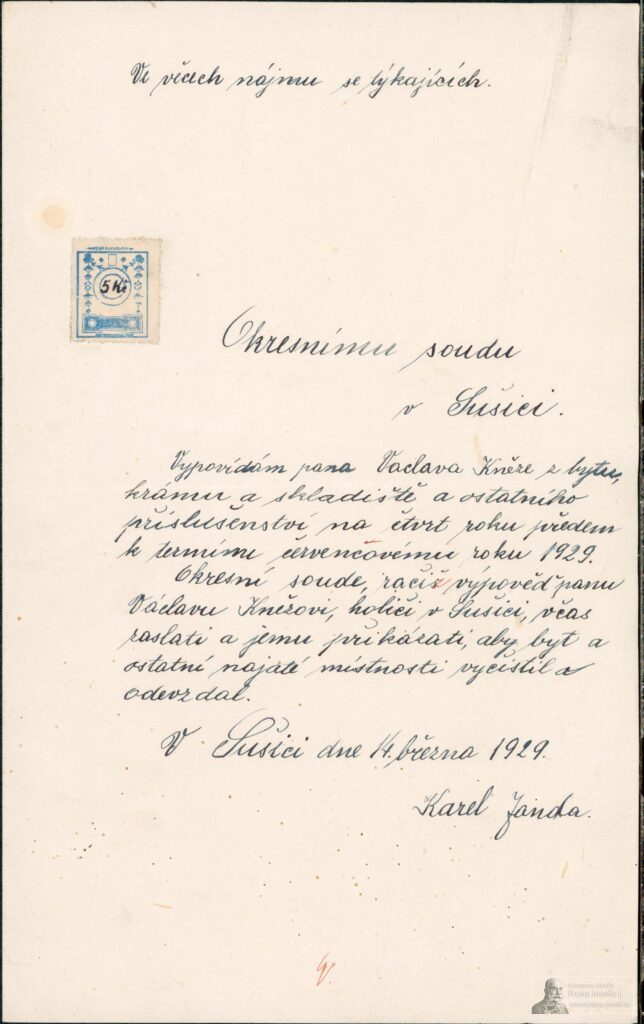 Ve věcech nájmu se týkajících.
5 Kč
Okresnímu soudu
v Sušici.
Vypovídám pana Vaclava Kněze z bytu,
krámu a skladiště a ostatního
příslušenství na čtvrt roku předem
k termínu červencovému roku 1929.
Okresní soude, račiž výpověď panu
Václavu Knězovi, holiči v Sušici, včas
zaslati a jemu přikázati, aby byt a
ostatní najaté místnosti vyčistil a
odevzdal.
V Sušici dne 14. března 1929.
Karel Janda.
Franz Joseph I.